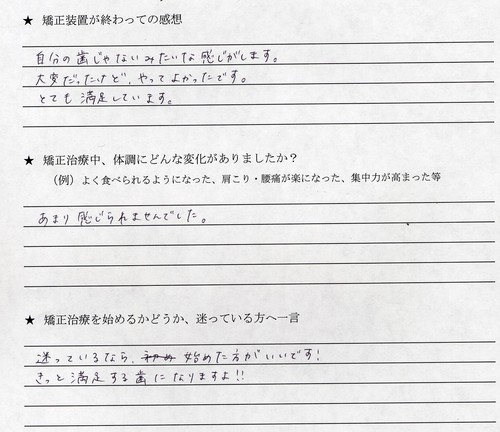 ★ 矯正装置が終わっての感想
自分の歯じゃないみたいな感じがします。
大変だったけど、やってよかったです。
とても満足しています。
★ 矯正治療中、体調にどんな変化がありましたか？
（例）よく食べられるようになった、肩こり・腰痛が楽になった、集中力が高まった等
あまり感じられませんでした。
★ 矯正治療を始めるかどうか、迷っている方へ一言
迷っているなら、始めた方がいいです！
きっと満足する歯になりますよ!!